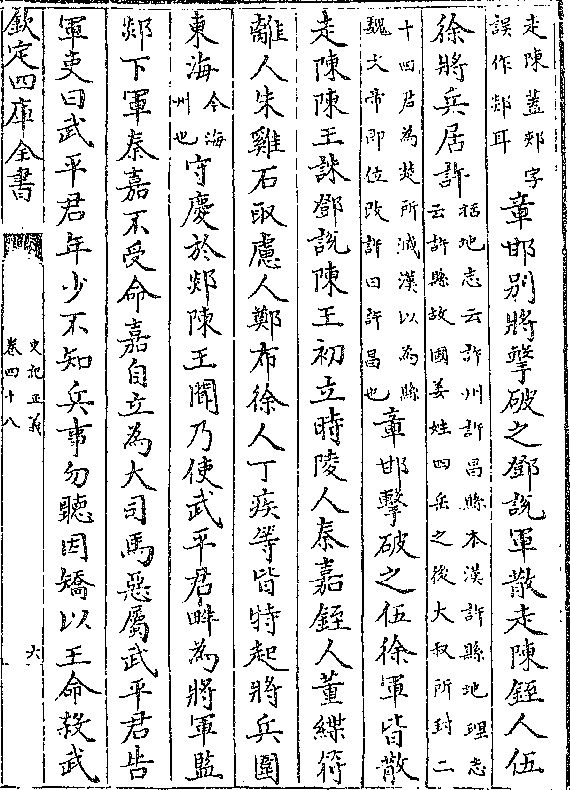 走陳蓋郟字
誤作郯耳
章邯别將擊破之鄧說軍散走陳銍人伍
徐將兵居許
括地志云許州許昌縣本漢許縣地理志
云許縣故國姜姓四岳之後大叔所封二
十四君為楚所滅漢以為縣
魏文帝即位改許曰許昌也
章邯擊破之伍徐軍皆散
走陳陳王誅鄧說陳王初立時陵人秦嘉銍人董緤符
離人朱雞石取慮人鄭布徐人丁疾等皆特起將兵圍
東海
今海
州也
守慶於郯陳王聞乃使武平君畔為將軍監
郯下軍秦嘉不受命嘉自立為大司馬惡屬武平君告
軍吏曰武平君年少不知兵事勿聽因矯以王命殺武
欽定四庫全書
史記正義
卷四十八
六